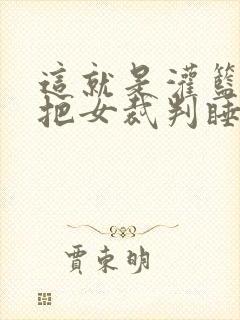 這就是灌籃
把女裁判睡
賈東明